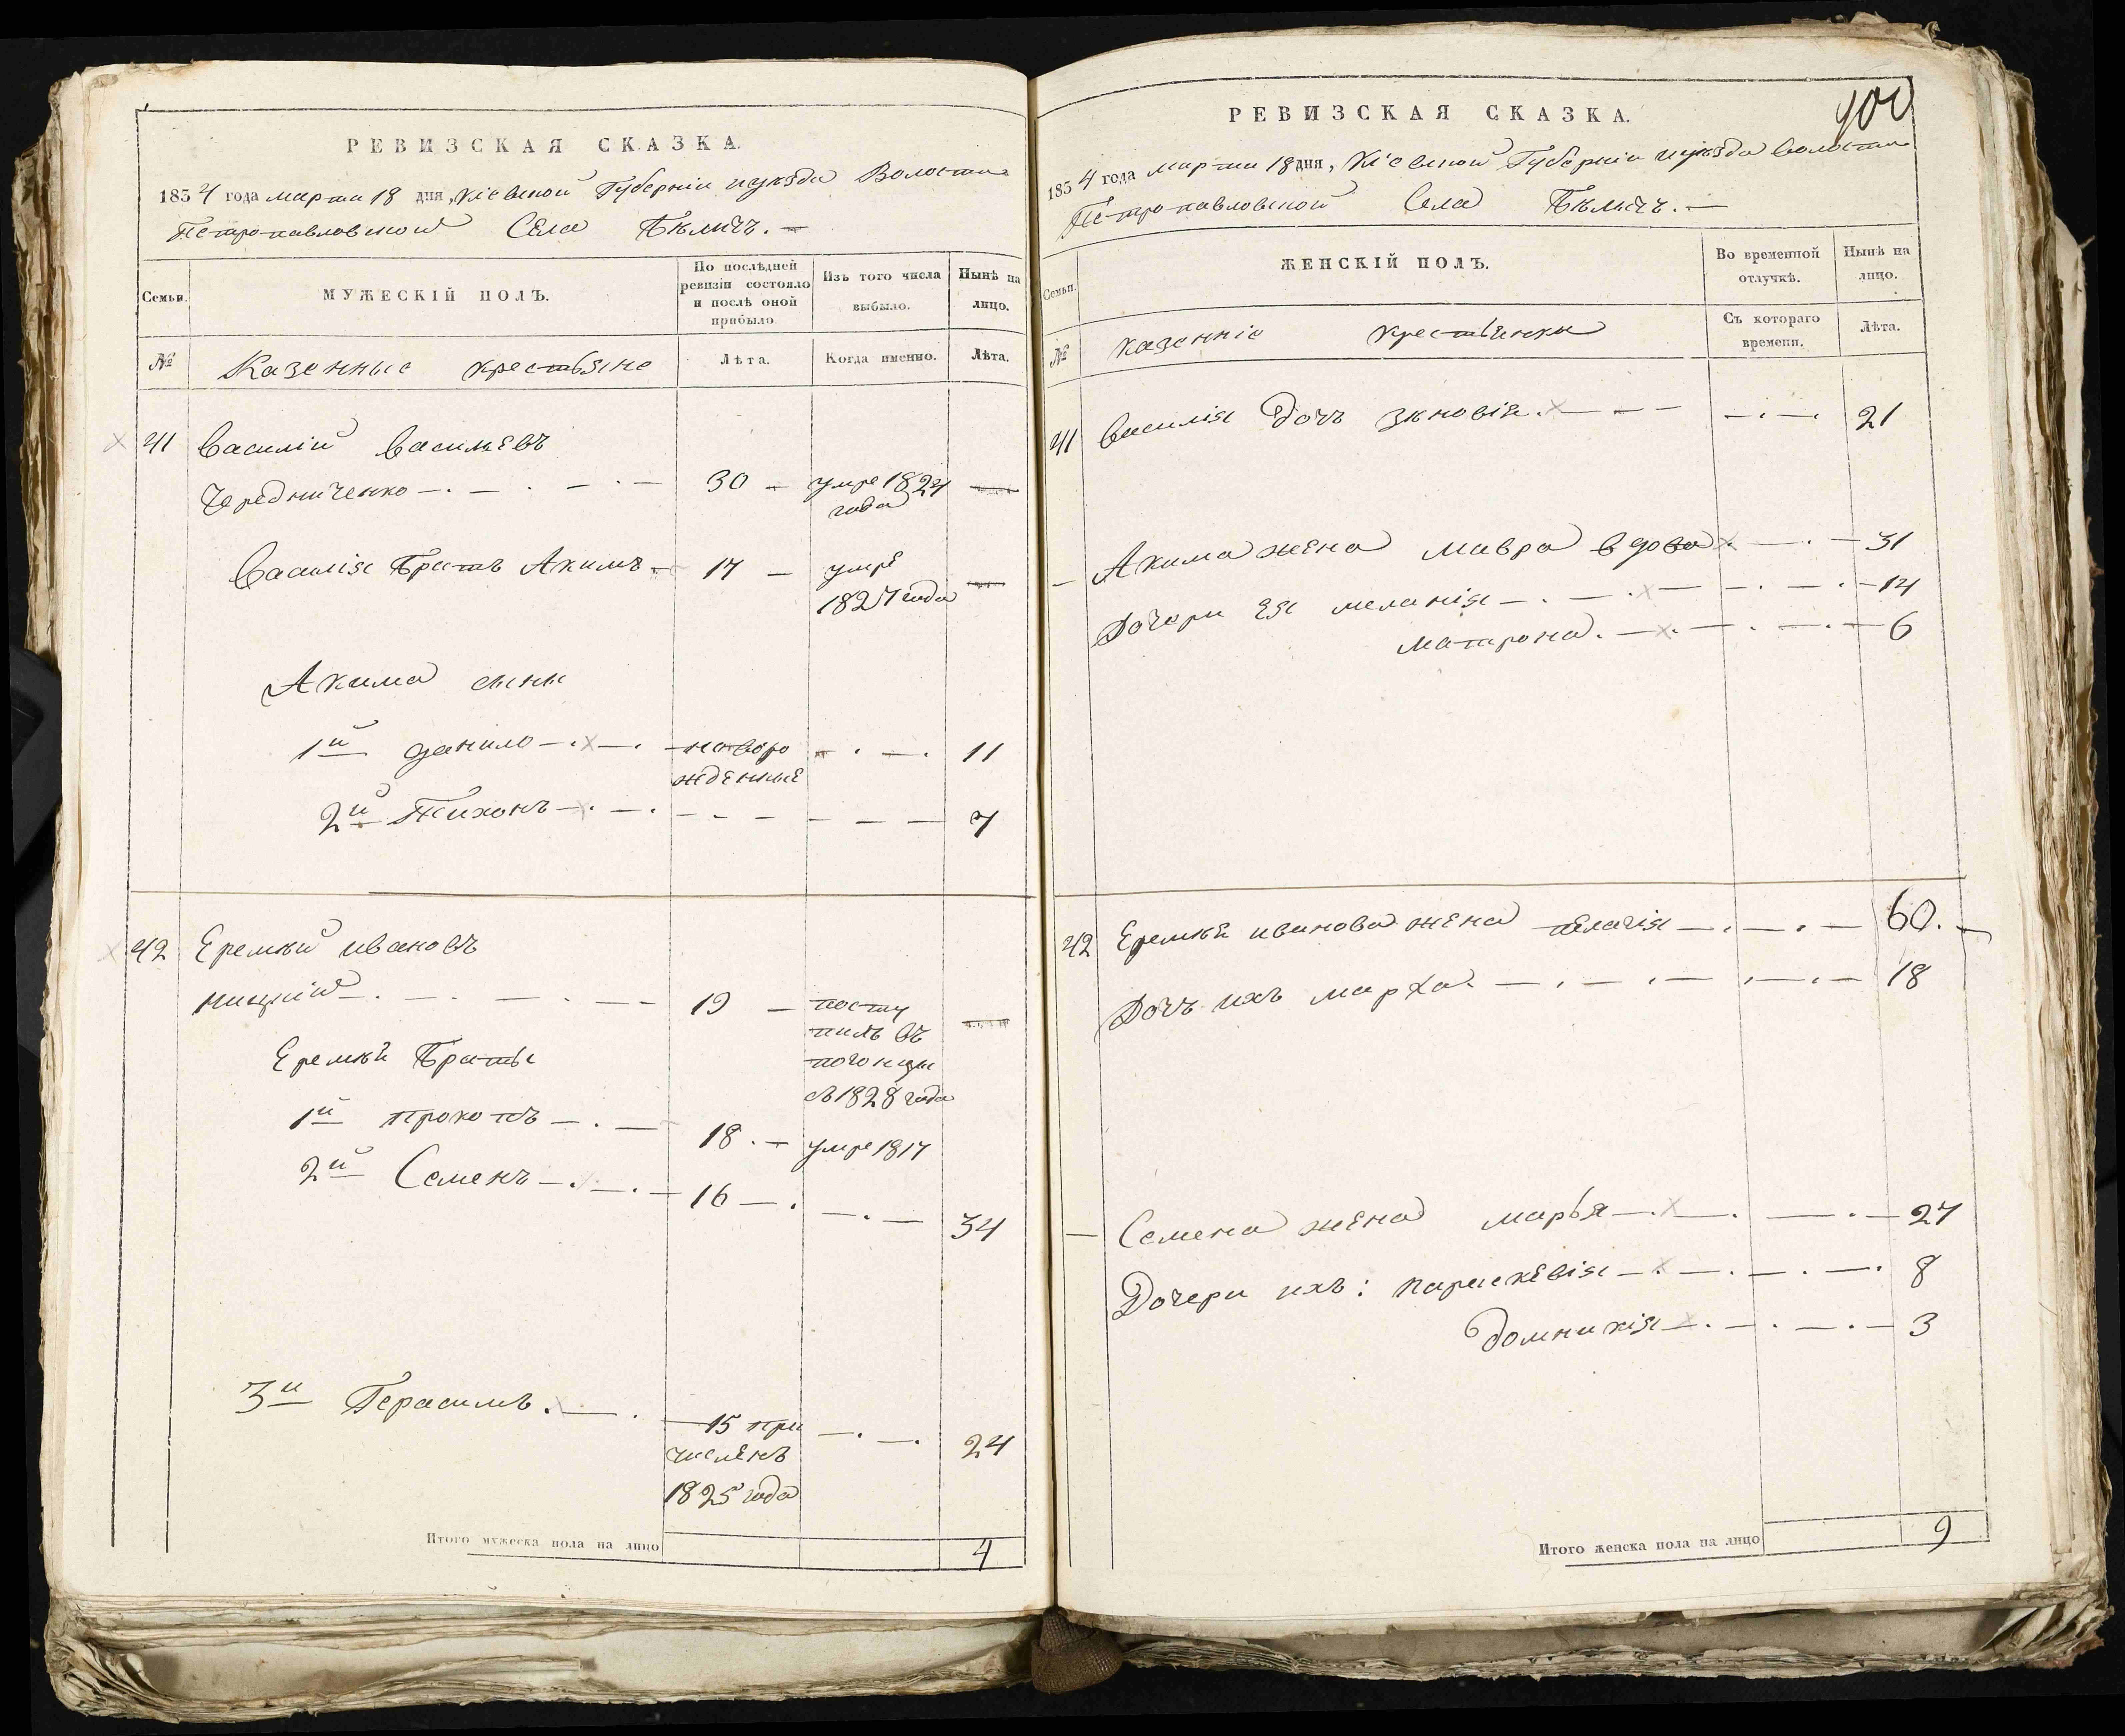 РЕВИЗСКАЯ СКАЗКА.
1834 года марта 18 дня, Кіевской Губерніи иуѣзда Волости
Петропавловской Села Бѣличъ. —
Семьи.
МУЖЕСКІЙ ПОЛЪ.
По послѣдней ревизіи состояло и послѣ оной прибыло
Изъ того числа выбыло.
Нынѣ на лицо.
№
Казенные крестьяне
Лѣта.
Когда именно.
Лѣта.
41 Василій Васильевъ
Чередниченко — . — . — . — 30 — умре 1824 —
года
Василія Братъ Акимъ — 17 — умре —
1827 года
Акима сыны
1й данило — . — . — новоро — . — . 11
жденные
2й Тихонъ — . — . — — — — — — 7
42 Еремѣй ивановъ
ницкій — . — . — . — — 19 — посту —
пилъ въ
Еремѣя Братья
погонцы
съ 1828 года
1й прокопъ — . — 18 . — умре 1817
2й Семенъ — . — . — 16 — . — . — 34
3й Герасимъ . — . — 15 при — . — . 24
численъ
1825 года
Итого мужеска пола на лицо 4
400
РЕВИЗСКАЯ СКАЗКА.
1834 года марта 18 дня, Кіевской Губерніи иуѣзда Волости
Петропавловской Села Бѣличъ. —
Семьи.
ЖЕНСКІЙ ПОЛЪ.
Во временной отлучкѣ.
Нынѣ на лицо.
№
казенніе крестьянки
Съ котораго времени.
Лѣта.
41 Василія дочъ зѣновія . — — — — . — . 21
— Акима жена мавра вдова . — . — 31
Дочери Ея меланія — . — . — — . — . — 14
матрона . — . — . — . — 6
42 Еремѣя иванова жена пелагія — . — . — 60. —
Дочъ ихъ марха . — . — . — . — . — 18
— Семена жена марья — . — . — . — 27
Дочери ихъ: параскевія — . — . — . — . 8
домникія — . — . — . — 3
Итого женска пола на лицо 9